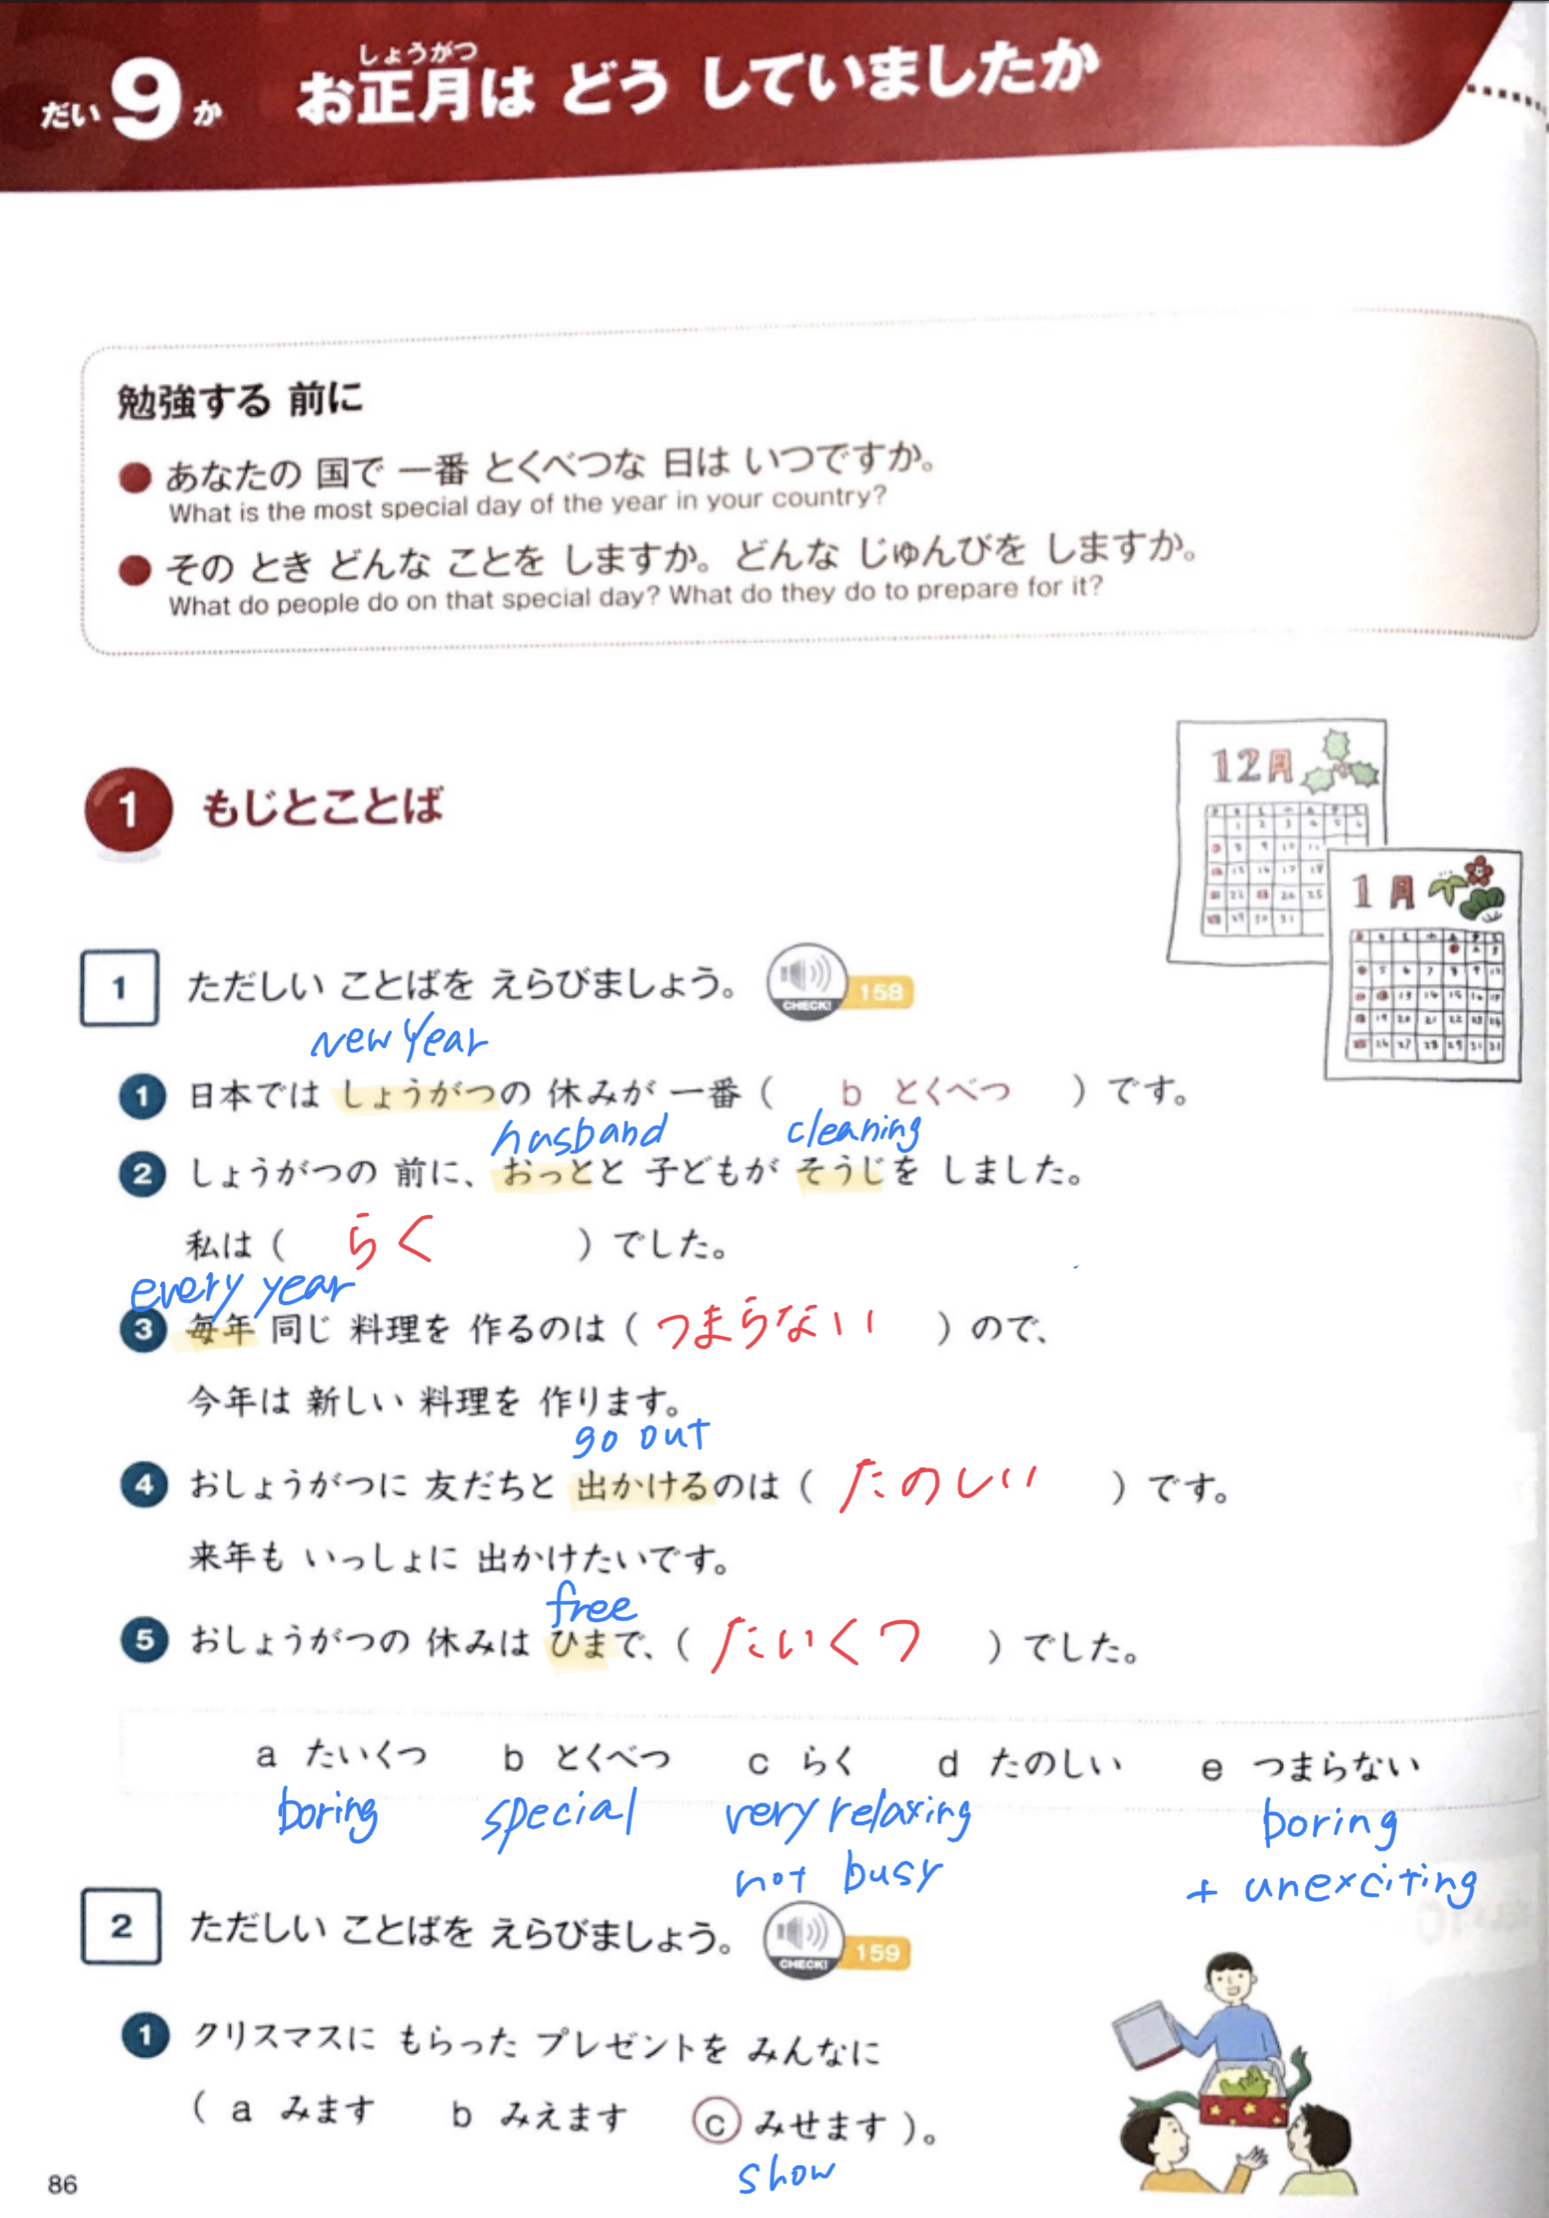 しょうがつ
だい9か お正月は どう していましたか
勉強する 前に
● あなたの 国で 一番 とくべつな 日は いつですか。
What is the most special day of the year in your country?
● その とき どんな ことを しますか。どんな じゅんびを しますか。
What do people do on that special day? What do they do to prepare for it?
12月
1月
1 もじとことば
1 ただしい ことばを えらびましょう。 CHECK! 158
New Year
1 日本では しょうがつの 休みが 一番( b とくべつ )です。
husband cleaning
2 しょうがつの 前に、おっとと 子どもが そうじを しました。
私は( らく )でした。
every year
3 毎年 同じ 料理を 作るのは( つまらない )ので、
今年は 新しい 料理を 作ります。
go out
4 おしょうがつに 友だちと 出かけるのは( たのしい )です。
来年も いっしょに 出かけたいです。
free
5 おしょうがつの 休みは ひまで、( たいくつ )でした。
a たいくつ b とくべつ c らく d たのしい e つまらない
boring special very relaxing boring
not busy + unexciting
2 ただしい ことばを えらびましょう。 CHECK! 159
1 クリスマスに もらった プレゼントを みんなに
( a みます b みえます c みせます )。
show
86